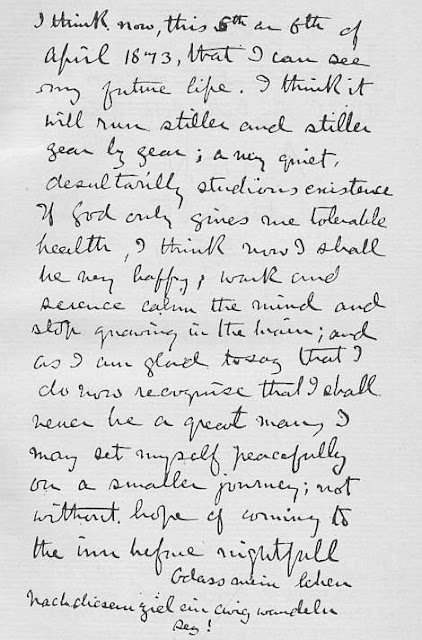 I think now, this 5th or 6th of
April 1873, that I can see
my future life. I think it
will run stiller and stiller
year by year; a very quiet,
desultorily studious existence
If God only gives me tolerable
health, I think now I shall
be very happy; work and
science calm the mind and
stop gnawing in the brain; and
as I am glad to say that I
do now recognise that I shall
never be a great man, I
may set myself peacefully
on a smaller journey; not
without hope of coming to
the inn before nightfall
O dass mein leben
Nach diesem ziel ein ewig wandeln
sey!